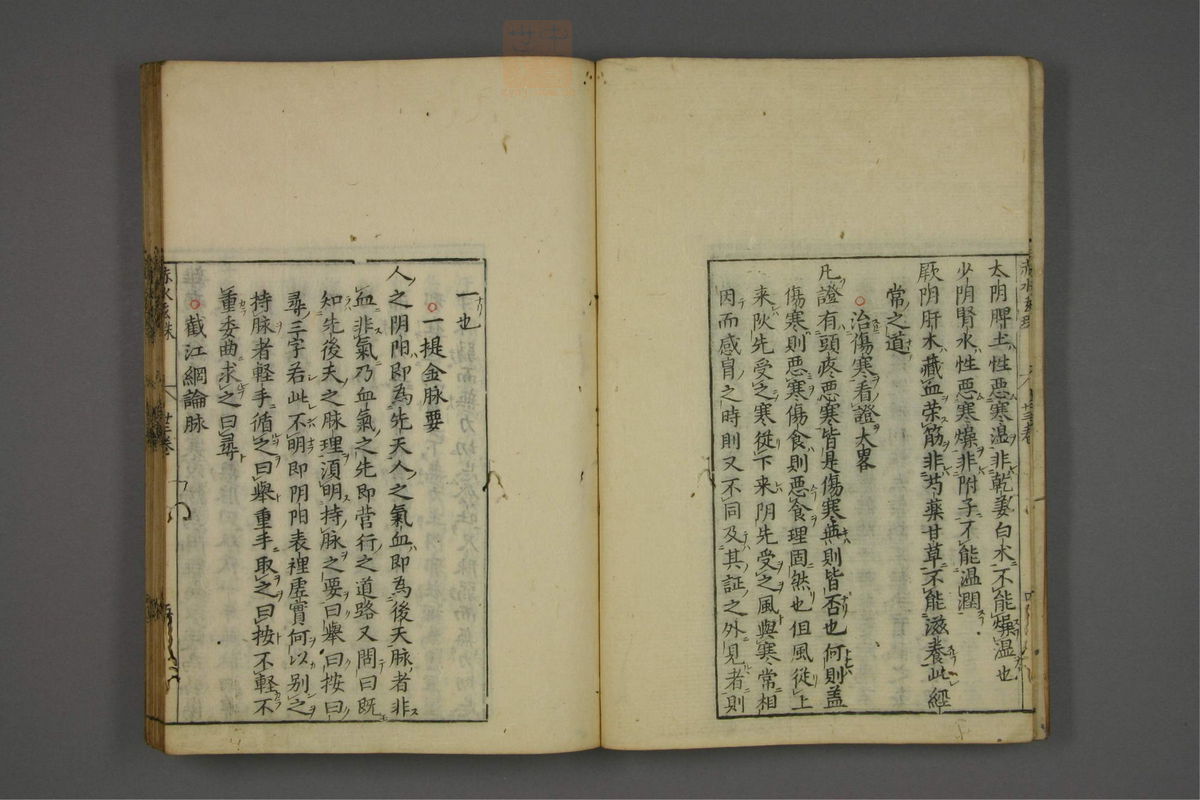 太阴脾土性恶寒温非乾姜白术不能燥温也
少阴腎水性恶寒燥非附子不能温潤
厥阴肝木藏血荣筋非芍藥甘草不能滋養此經
常之道
治傷寒看證大畧
凡證有頭疼恶寒皆是傷寒無則皆否也何則盖
傷寒則恶寒傷食則恶食理固然也但風從上
来阦先受之寒從下来阴先受之風與寒常相
因而感冐之時則又不同及其証之外見者則
一也
一提金脉要
人之阴阳即為先天人之氣血即為後天脉者非
血非氣乃血氣之先即营行之道路又問曰既
知先後天之脉理湏明持脉之要曰舉曰按曰
尋三字若此不明即阴阳表裡虚實何以别之
持脉者軽手循之曰舉重手取之曰按不軽不
重委曲求之曰尋
截江網論脉